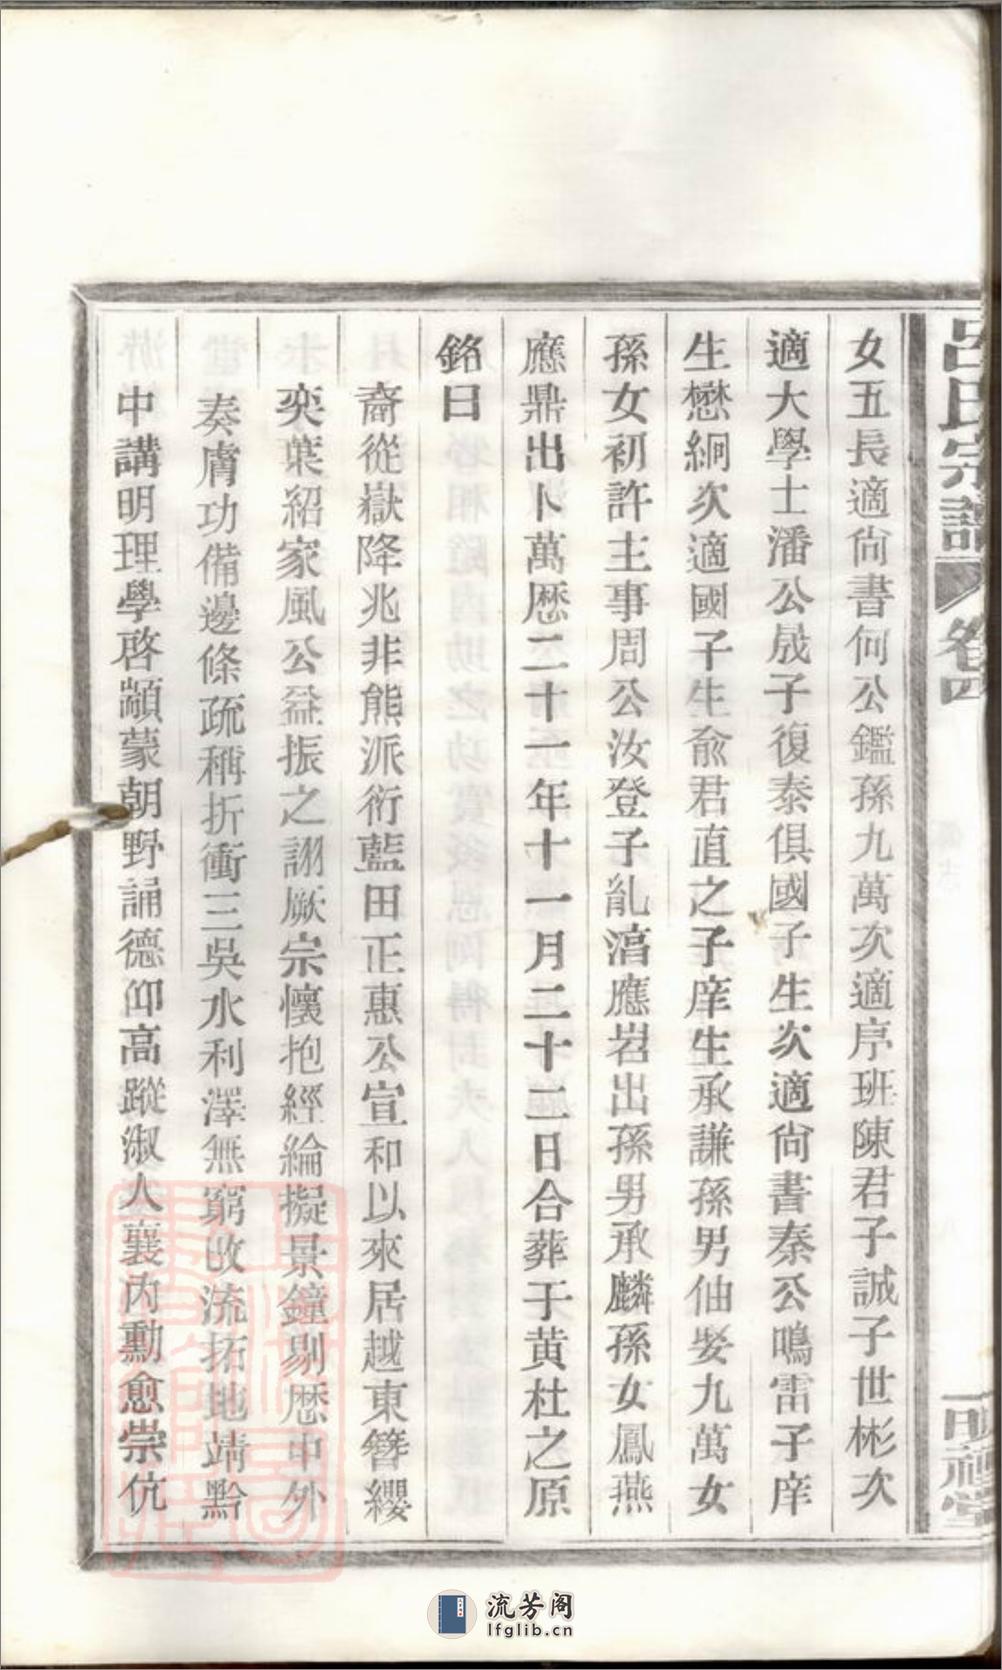 呂氏宗譜 卷四 明禋堂
女五長適尙書何公鑑孫九萬次適序班陳君子誠子世彬次
適大學士潘公晟子復泰俱國子生次適尙書秦公鳴雷子庠
生懋絅次適國子生俞君直之子庠生承謙孫男伷娶九萬女
孫女初許主事周公汝登子胤滀應岩出孫男承麟孫女鳳燕
應鼎出卜萬歷二十一年十一月二十二日合葬于黄杜之原
銘曰
裔從嶽降兆非熊派衍藍田正惠公宣和以來居越東簪纓
奕葉紹家風公益振之詡厥宗懷抱經綸擬景鐘剔歷中外
奏膚功備邊條疏稱折衝三吳水利澤無窮改流拓地靖黔
中講明理學啓顓蒙朝野誦德仰高蹤淑人襄內勳愈崇伉
流芳阁
lfglib.cn